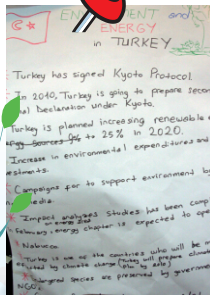 ENVIRONMENT and
ENERGY
in TURKEY
Turkey has signed Kyoto Protocol.
In 2010, Turkey is going to prepare secon
al Declaration under Kyoto.
Turkey is planned incresing renewable
Sources to 25% in 2020.
Increase in environmental expenditures and
estments.
Campaigns for to support environment by
media.
Impact analyses studies has been comp
February, energy chapter is expected to ope
Nabucco
Turkey is one of the countries who will be m
by climate change (Turkey will prepare climate
species are preserved by governme
NGO